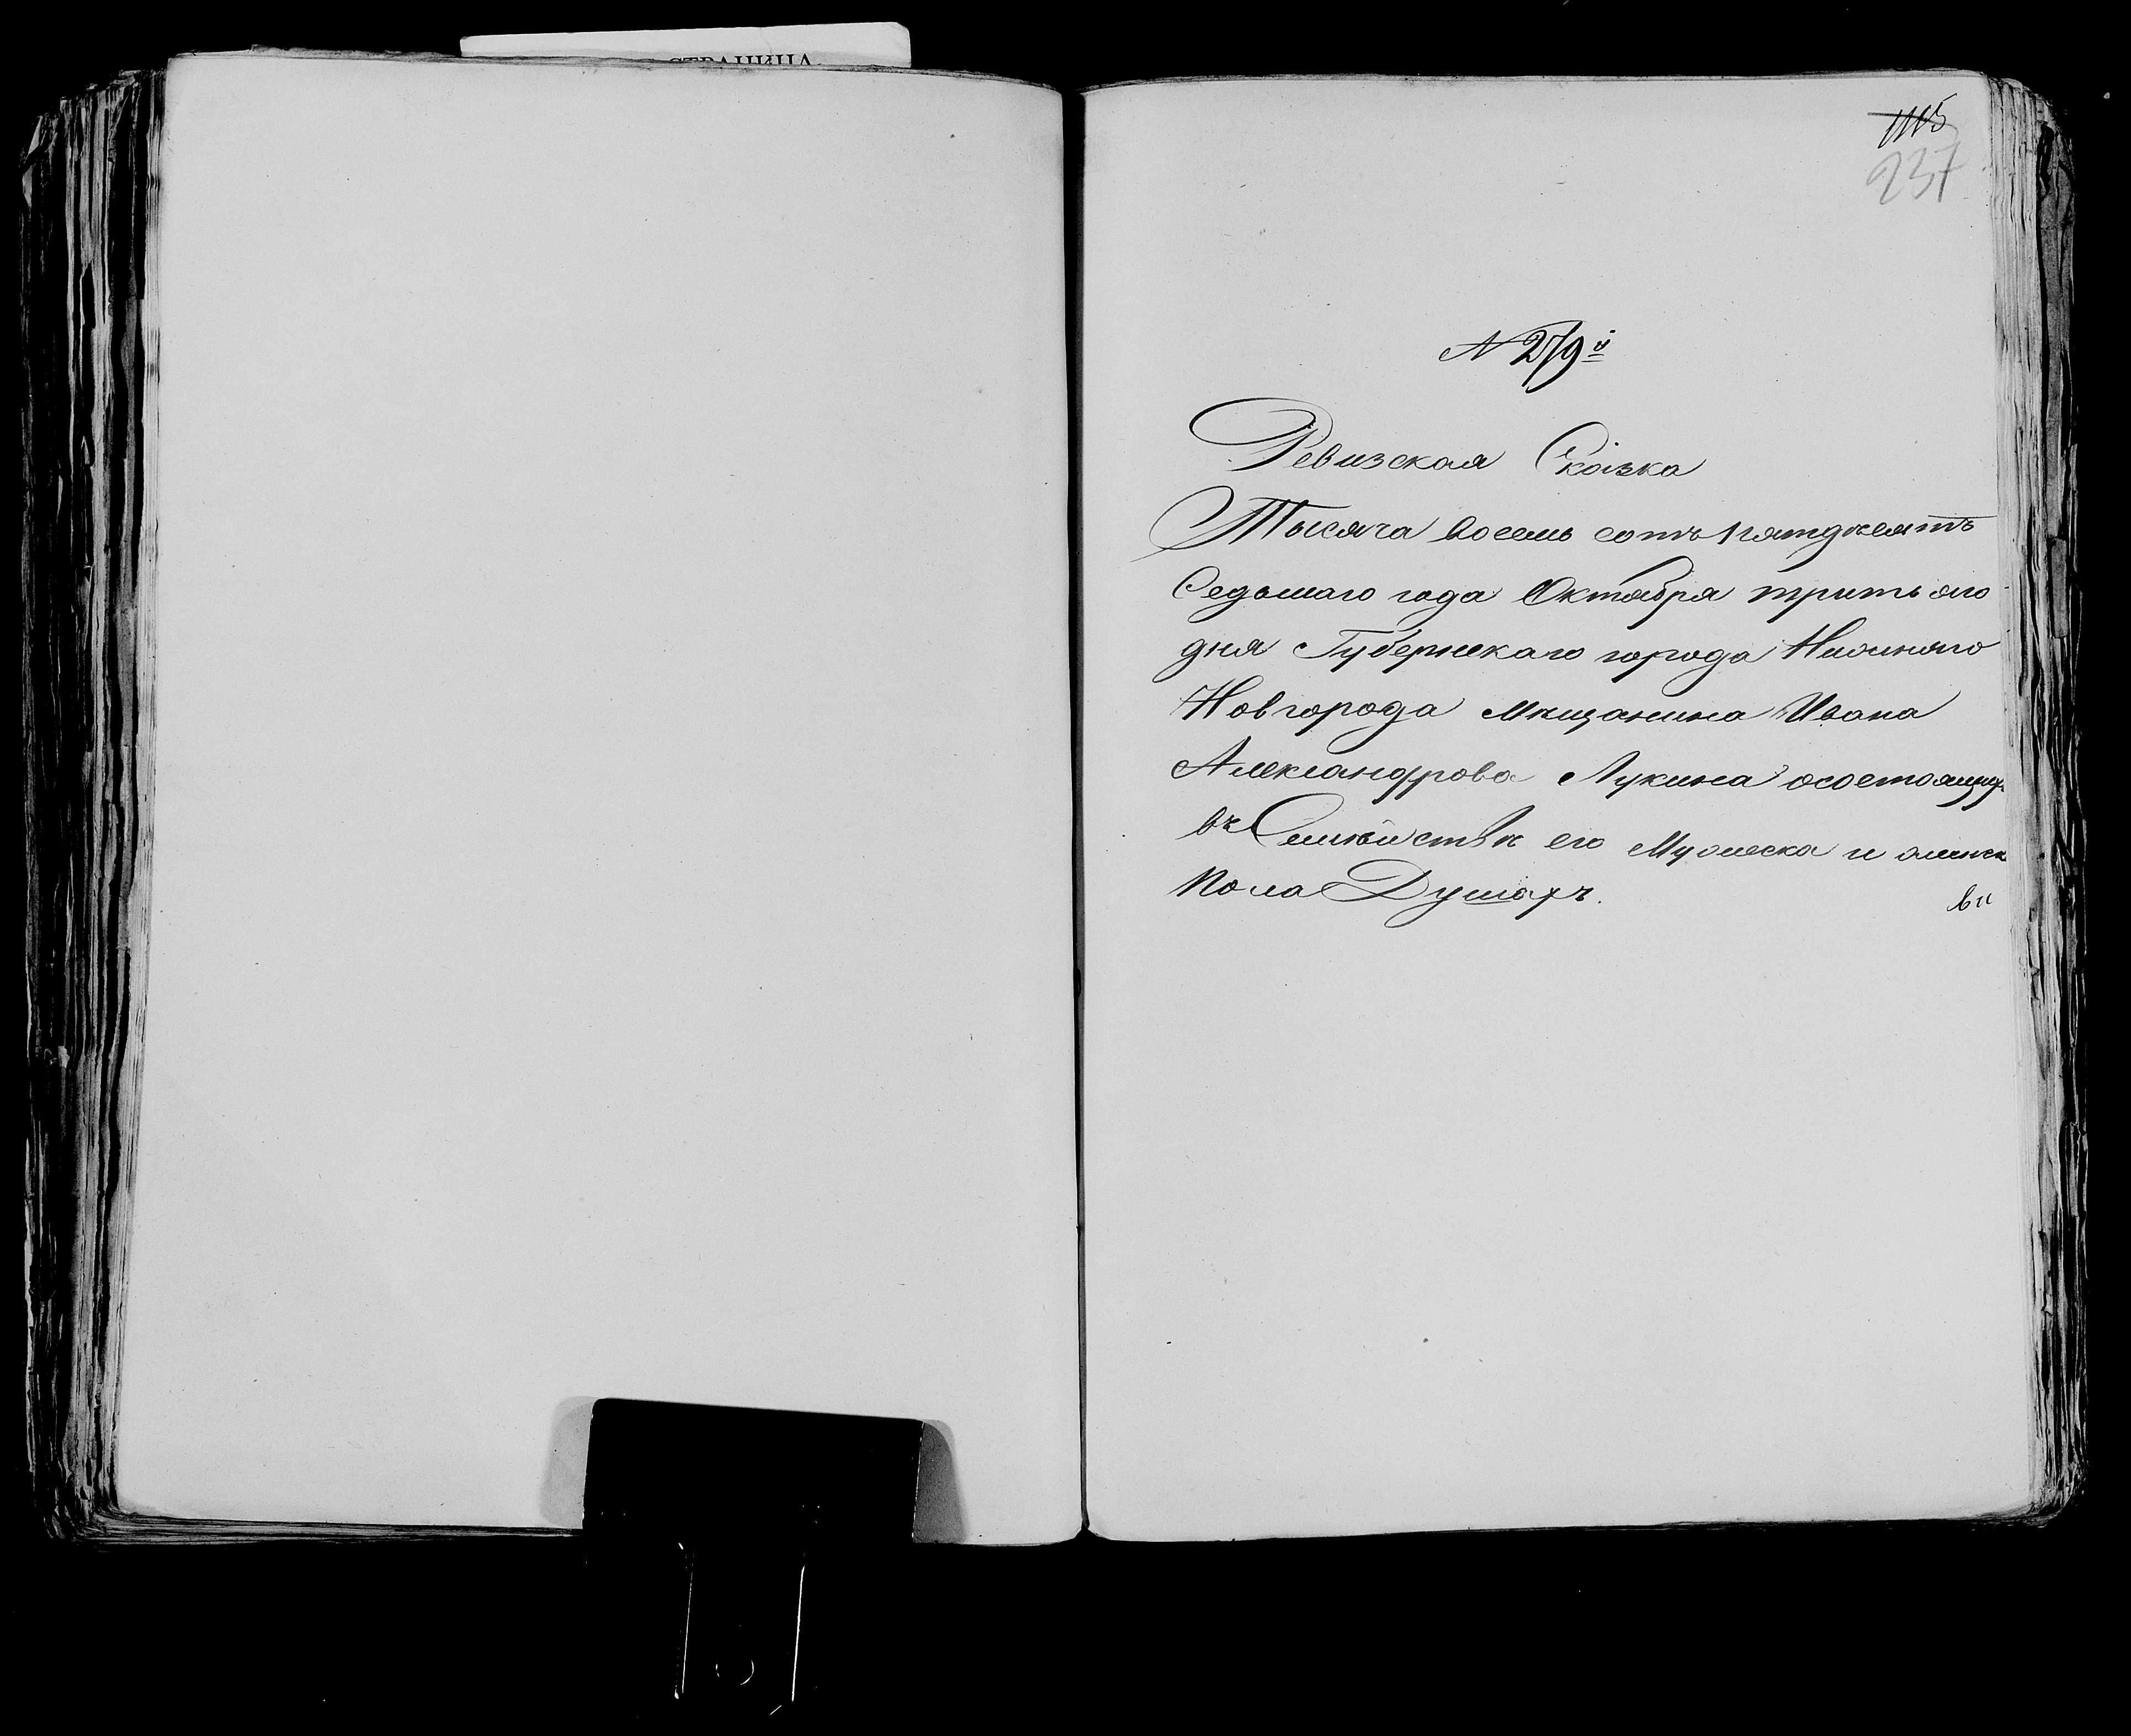 СТРАНИЦА
1115
237
N 279й
Ревизская Сказка
Тысяча восемь сотъ пятдѣсятъ
Седьмаго года Октября третьяго
дня Губернскаго города Нижняго
Новгорода Мѣщанина Ивана
Александрова Лукина осостоящихъ
въ Семѣйствѣ его Мужеска и женска
пола Душахъ.